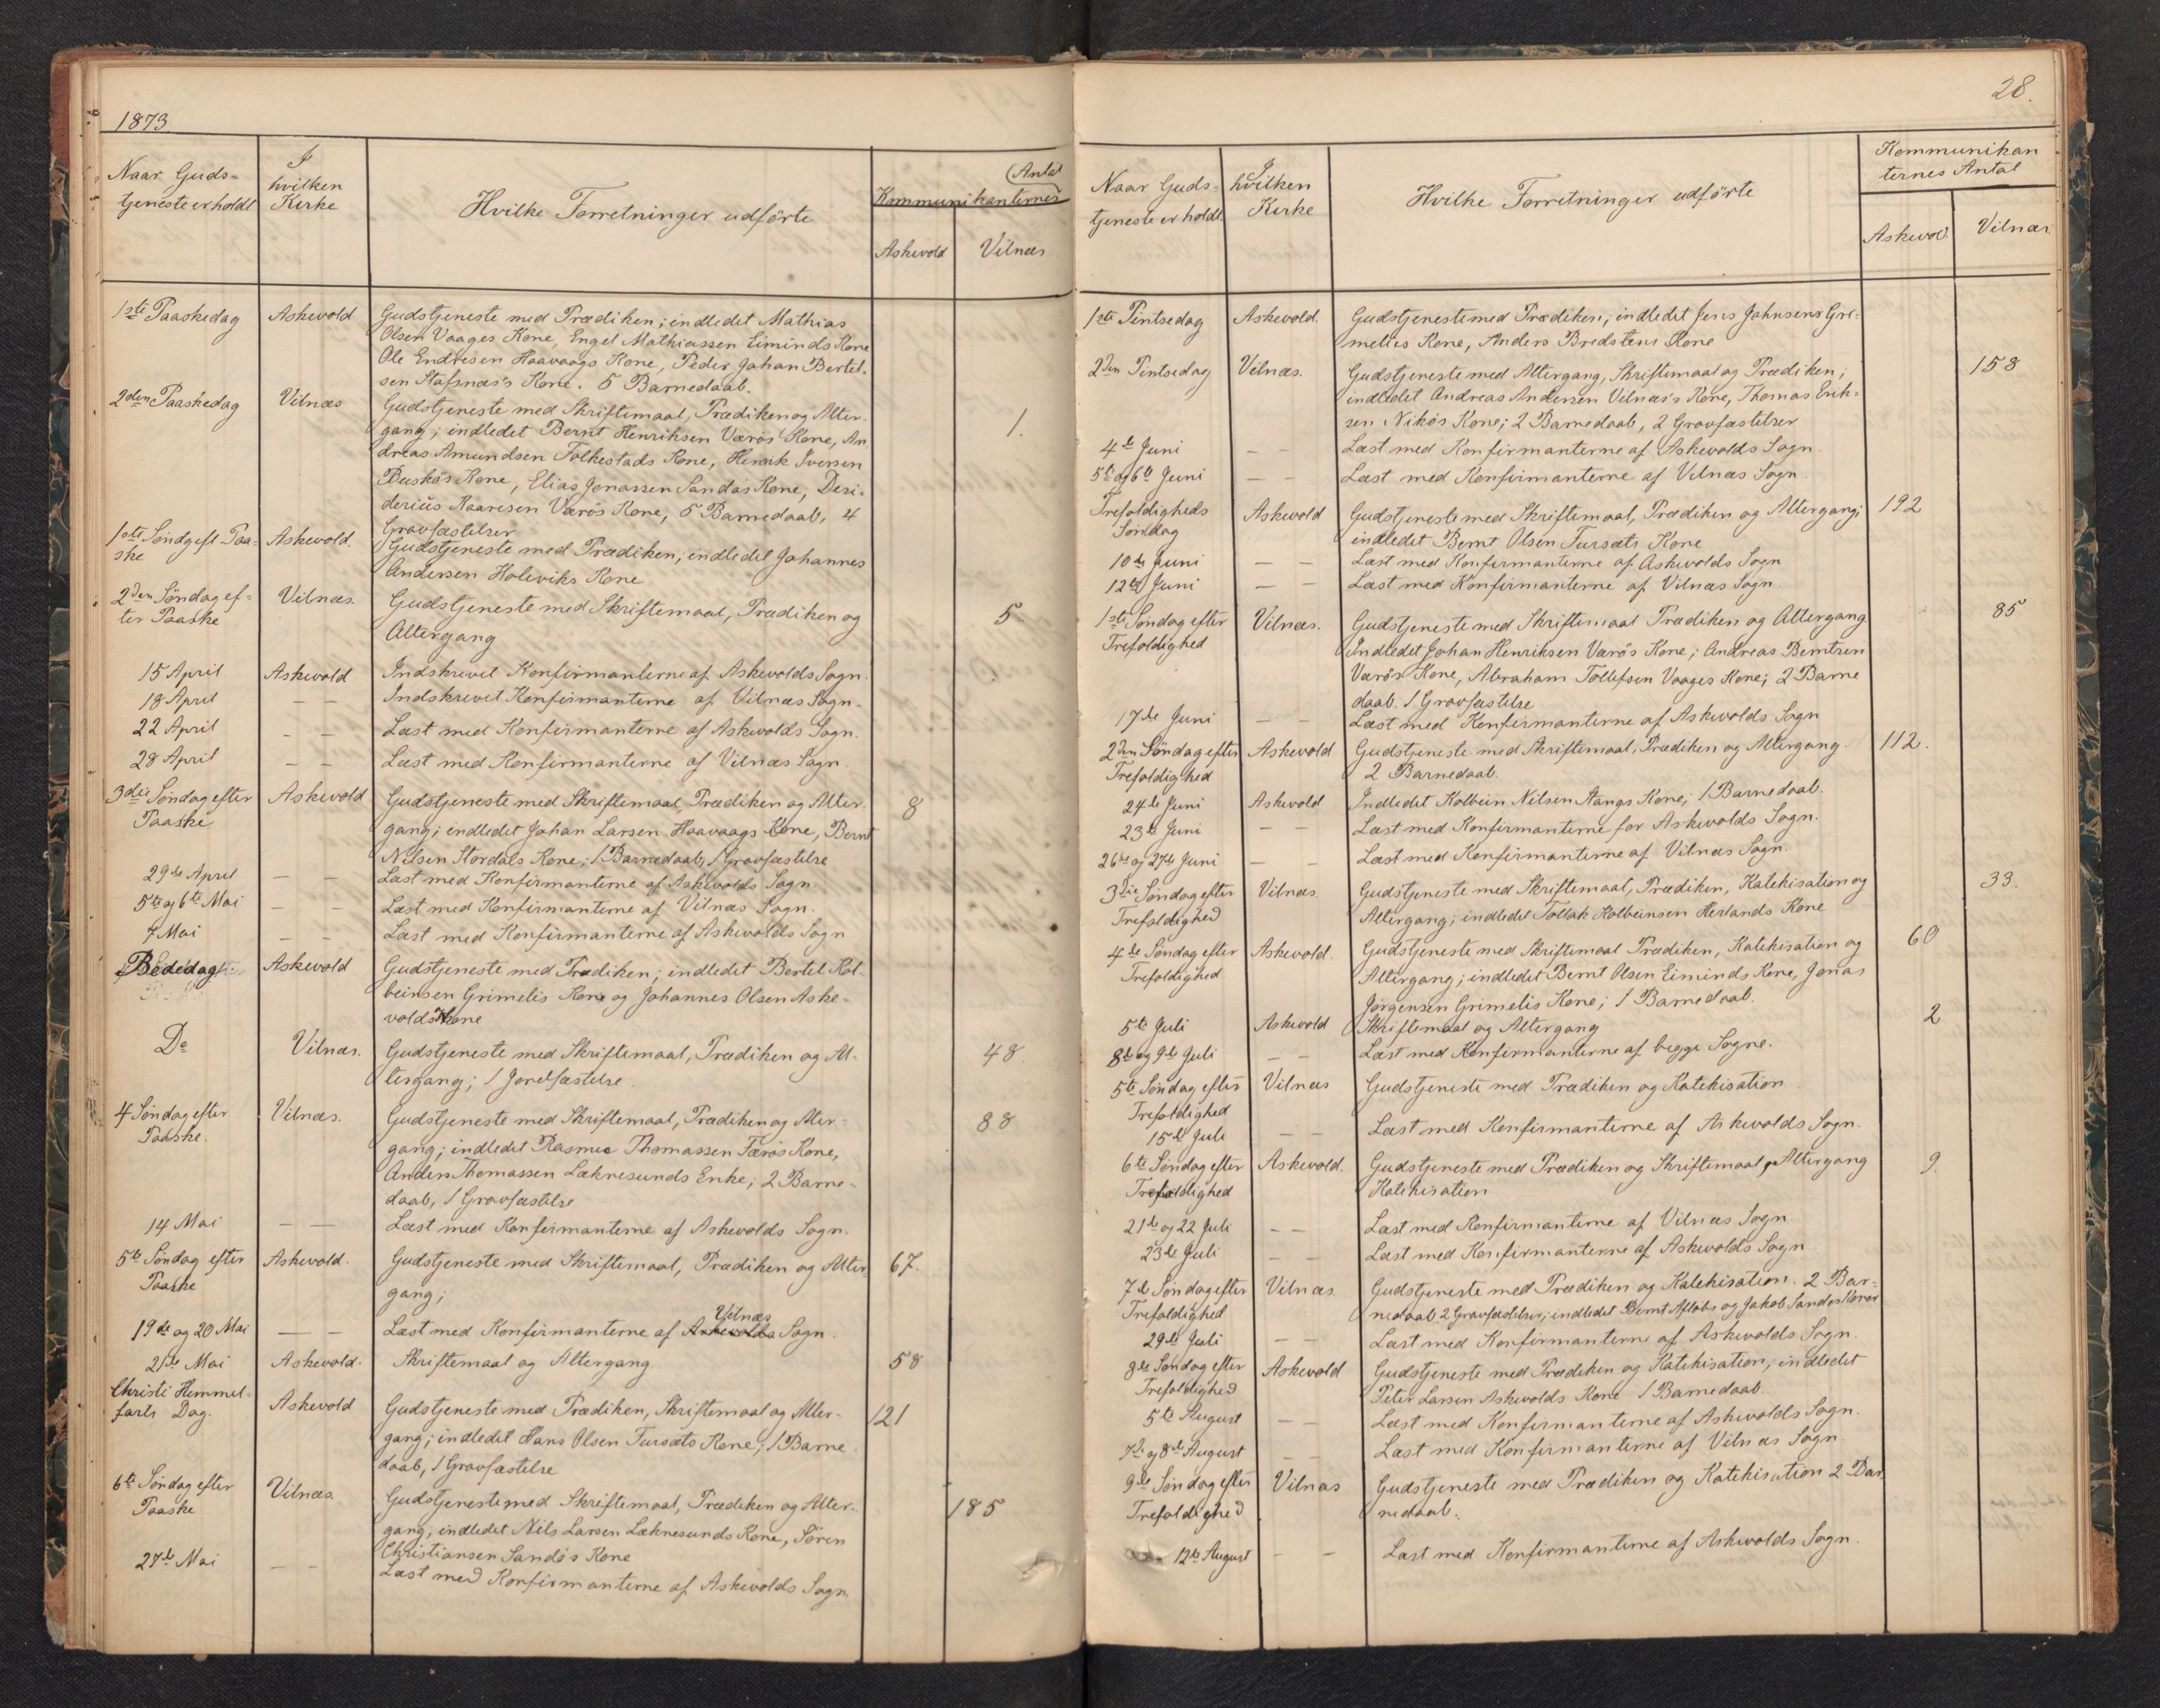 1873.
Naar Guds-
tjeneste er holdt
I
hvilken
Kirke
Hvilke Forretninger udførte
Antal
Kommunikanternes
Askevold
Vilnæs
1ste Paaskedag
Askevold
Gudstjeneste med Prædiken; indledet Mathias
Olsen Vaages Kone, Engel Mathiassen Eiminds Kone
Ole Endresen Haavaags Kone, Peder Johan Bertel-
sen Stafsnæs's Kone. 5 Barnedaab.
2den Paaskedag
Vilnæs
Gudstjeneste med Skriftemaal, Prædiken og Alter-
gang; indledet Bernt Henriksen Værös Kone, An
dreas Amundsen Folkestads Kone, Henrik Iversen
Buskös Kone, Elias Jonassen Sandøs Kone, Desi-
deriüs Kaaresen Værös Kone, 5 Barnedaab, 4
Gravfæstelser
1.
1ste Søndg eft Paa-
ske
Askevold.
Gudstjeneste med Prædiken; indledet Johannes
Andersen Holeviks Kone
2den Söndag ef-
ter Paaske
Vilnæs.
Gudstjeneste med Skriftemaal, Prædiken og
Altergang
5
15 April
Askevold
Indskrevet Konfirmanterne af Askevolds Sogn.
18 April
— —
Indskrevet Konfirmanterne af Vilnæs Sogn.
22 April
— —
Læst med Konfirmanterne af Askevolds Sogn.
28 April
— —
Læst med Konfirmanterne af Vilnæs Sogn.
3die Søndag efter
Paaske
Askevold
Gudstjeneste med Skriftemaal Prædiken og Alter
gang; indledet Johan Larsen Haavaags Kone, Bernt
Nilsen Stordals Kone; 1 Barnedaab, 1 Gravfæstelse
8
29de April
— —
Læst med Konfirmanterne af Askevolds Sogn.
5te og 6te Mai
— —
Læst med Konfirmanterne af Vilnæs Sogn.
7 Mai
— —
Læst med Konfirmanterne af Askevolds Sogn
Bededag
Askevold
Gudstjeneste med Prædiken; indledet Bertel Kol
beinsen Grimelis Kone og Johannes Olsen Aske-
volds Kone
Do
Vilnæs.
Gudstjeneste med Skriftemaal, Prædiken og Al-
tergang; 1 Jordfæstelse.
48
4 Söndag efter
Paaske.
Vilnæs.
Gudstjeneste med Skriftemaal, Prædiken og Alter-
gang; indledet Rasmus Thomassen Færøs Kone,
Anders Thomassen Læknesunds Enke; 2 Barne-
daab, 1 Gravfæstelse
88
14 Mai
— —
Læst med Konfirmanterne af Askevolds Sogn.
5te Søndag efter
Paaske
Askevold.
Gudstjeneste med Skriftemaal, Prædiken og Alter
gang;
67.
19de og 20 Mai
— —
Vilnæs
Læst med Konfirmanterne af Askevolds Sogn.
21de Mai
Askevold.
Skriftemaal og Altergang
58
Christi Hemmel-
farts Dag.
Askevold
Gudstjeneste med Prædiken, Skriftemaal og Alter-
gang; indledet Hans Olsen Fursæts Kone; 1 Barne
daab, 1 Gravfæstelse
121
6te Søndag efter
Paaske
Vilnæs.
Gudstjeneste med Skriftemaal, Prædiken og Alter-
gang, indledet Nils Larsen Læknesunds Kone, Sören
Christiansen Sandø's Kone
185
27de Mai
— —
Læst med Konfirmanterne af Askevolds Sogn.
28.
Naar Guds-
tjeneste er holdt.
I
hvilken
Kirke
Hvilke Forretninger udførte
Kommunikan
ternes Antal
Askevol.
Vilnæs.
1ste Pintsedag
Askevold.
Gudstjeneste med Prædiken; indledet Jens Johnsens Gri-
melies Kone, Anders Bredstens Kone
2den Pintsedag
Vilnæs.
Gudstjeneste med Altergang, Skriftemaal og Prædiken;
indledet Andreas Andersen Vilnæs's Kone, Thomas Erik-
sen Nikøs Kone; 2 Barnedaab, 2 Gravfæstelser
158
4de Juni
— —
Læst med Konfirmanterne af Askevolds Sogn.
5te og 6te Juni
— —
Læst med Konfirmanterne af Vilnæs Sogn.
Trefoldigheds
Søndag
Askevold
Gudstjeneste med Skriftemaal, Prædiken og Altergang;
indledet Bernt Olsen Fursæts Kone
192
10de Juni
— —
Læst med Konfirmanterne af Askevolds Sogn
12te Juni
— —
Læst med Konfirmanterne af Vilnæs Sogn.
1ste Søndag efter
Trefoldighed
Vilnæs.
Gudstjeneste med Skriftemaal Prædiken og Altergang.
Indledet Johan Henriksen Værös Kone; Andreas Berntsen
Værøs Kone, Abraham Tollefsen Vaages Kone; 2 Barne
daab. 1 Gravfæstelse
85
17de Juni
— —
Læst med Konfirmanterne af Askevolds Sogn
2den Søndag efter
Trefoldighed
Askevold
Gudstjeneste med Skriftemaal, Prædiken og Altergang.
2 Barnedaab.
112.
24de Juni
Askevold
Indledet Kolbein Nilsen Stangs Kone; 1 Barnedaab.
23de Juni
— —
Læst med Konfirmanterne for Askevolds Sogn.
26de og 27de Juni
— —
Læst med Konfirmanterne af Vilnæs Sogn.
3die Søndag efter
Trefoldighed
Vilnæs.
Gudstjeneste med Skriftemaal, Prædiken, Katekisation og
Altergang; indledet Tollak Kolbeinsen Herlands Kone
33.
4de Søndag efter
Trefoldighed
Askevold.
Gudstjeneste med Skriftemaal Prædiken, Katekisation og
Altergang; indledet Bernt Olsen Eiminds Kone, Jonas
Jørgensen Grimelis Kone; 1 Barnedaab.
60
5te Juli
Askevold
Skriftemaal og Altergang
2
8de og 9de Juli
— —
Læst med Konfirmanterne af begge Sogne.
5te Søndag efter
Trefoldighed
Vilnæs
Gudstjeneste med Prædiken og Katekisation
15de Juli
— —
Læst med Konfirmanterne af Askevolds Sogn.
6te Søndag efter
Trefoldighed
Askevold.
Gudstjeneste med Prædiken og Skriftemaal Altergang
Katekisation
9.
21de og 22 Juli
— —
Læst med Konfirmanterne af Vilnæs Sogn
23de Juli
— —
Læst med Konfirmanterne af Askevolds Sogn
7de Søndag efter
Trefoldighed
Vilnæs
Gudstjeneste med Prædiken og Katekisation. 2 Bar-
nedaab 2 Gravfæstelser; indledet Bernt Afløbs og Jakob Sandøs Koner
29de Juli
— —
Læst med Konfirmanterne af Askevolds Sogn.
8de Søndag efter
Trefoldighed
Askevold
Gudstjeneste med Prædiken og Katekisation; indledet
Peter Larsen Askevolds Kone 1 Barnedaab.
5te August
— —
Læst med Konfirmanterne af Askevolds Sogn.
7de og 8de August
— —
Læst med Konfirmanterne af Vilnæs Sogn.
9de Søndag efter
Trefoldighed
Vilnæs
Gudstjeneste med Prædiken og Katekisation 2 Bar
nedaab.
12te August
— —
Læst med Konfirmanterne af Askevolds Sogn.